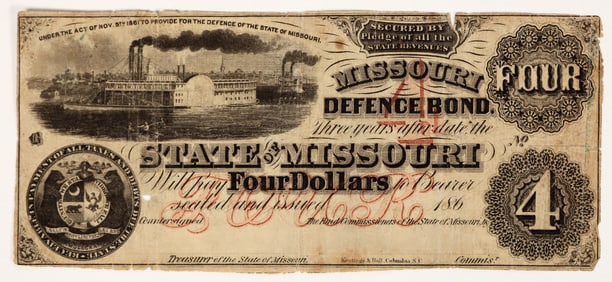 UNDER THE ACT OF NOV. 5TH 1861 TO PROVIDE FOR THE DEFENCE OF THE STATE OF MISSOURI.
SECURED BY
Pledge of all the
STATE REVENUES
MISSOURI
FOUR
DEFENCE BOND.
4
Three years after date the
No
STATE OF MISSOURI
Will pay Four Dollars to Bearer
sealed and issued 186
FOUR
Countersigned
The Fund Commissioners of the State of Missouri,
4
RECEIVABLE IN PAYMENT OF ALL TAXES AND DUES TO THE STATE
Treasurer of the State of Missouri.
Keatinge & Ball, Columbia, S.C.
Commisr.